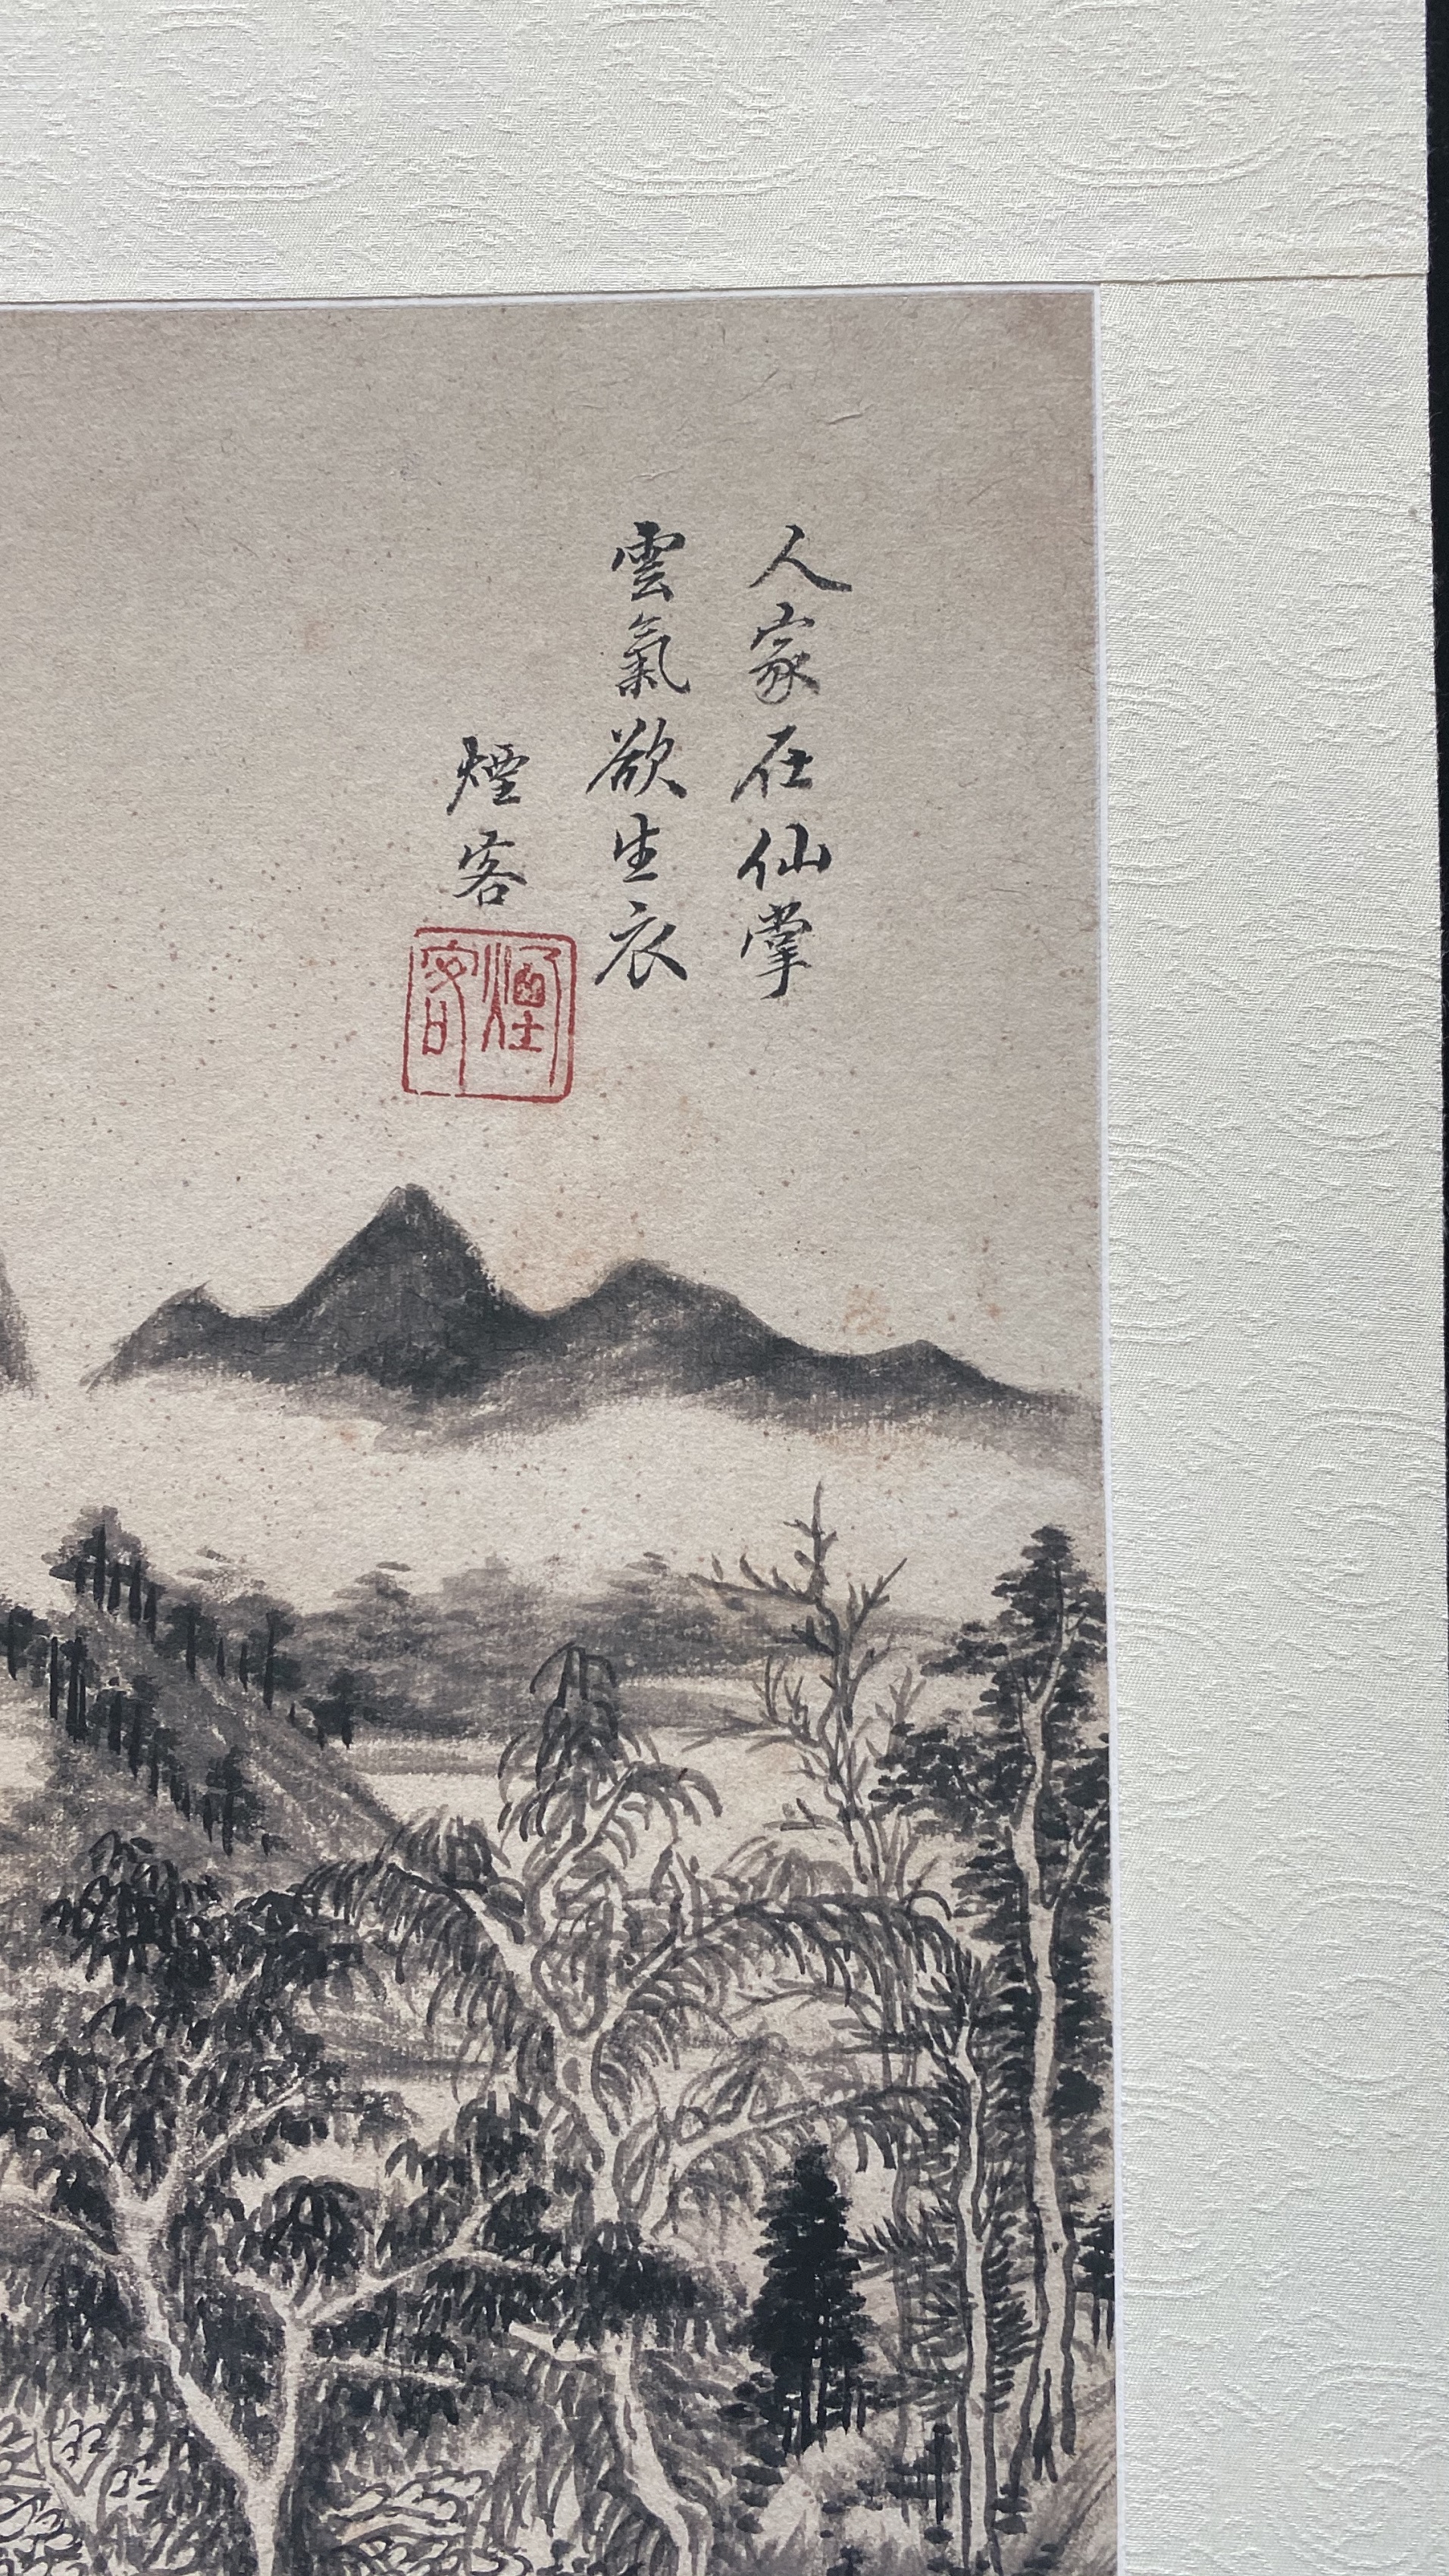 人家在仙掌
雲氣欲生衣
煙客
煙客